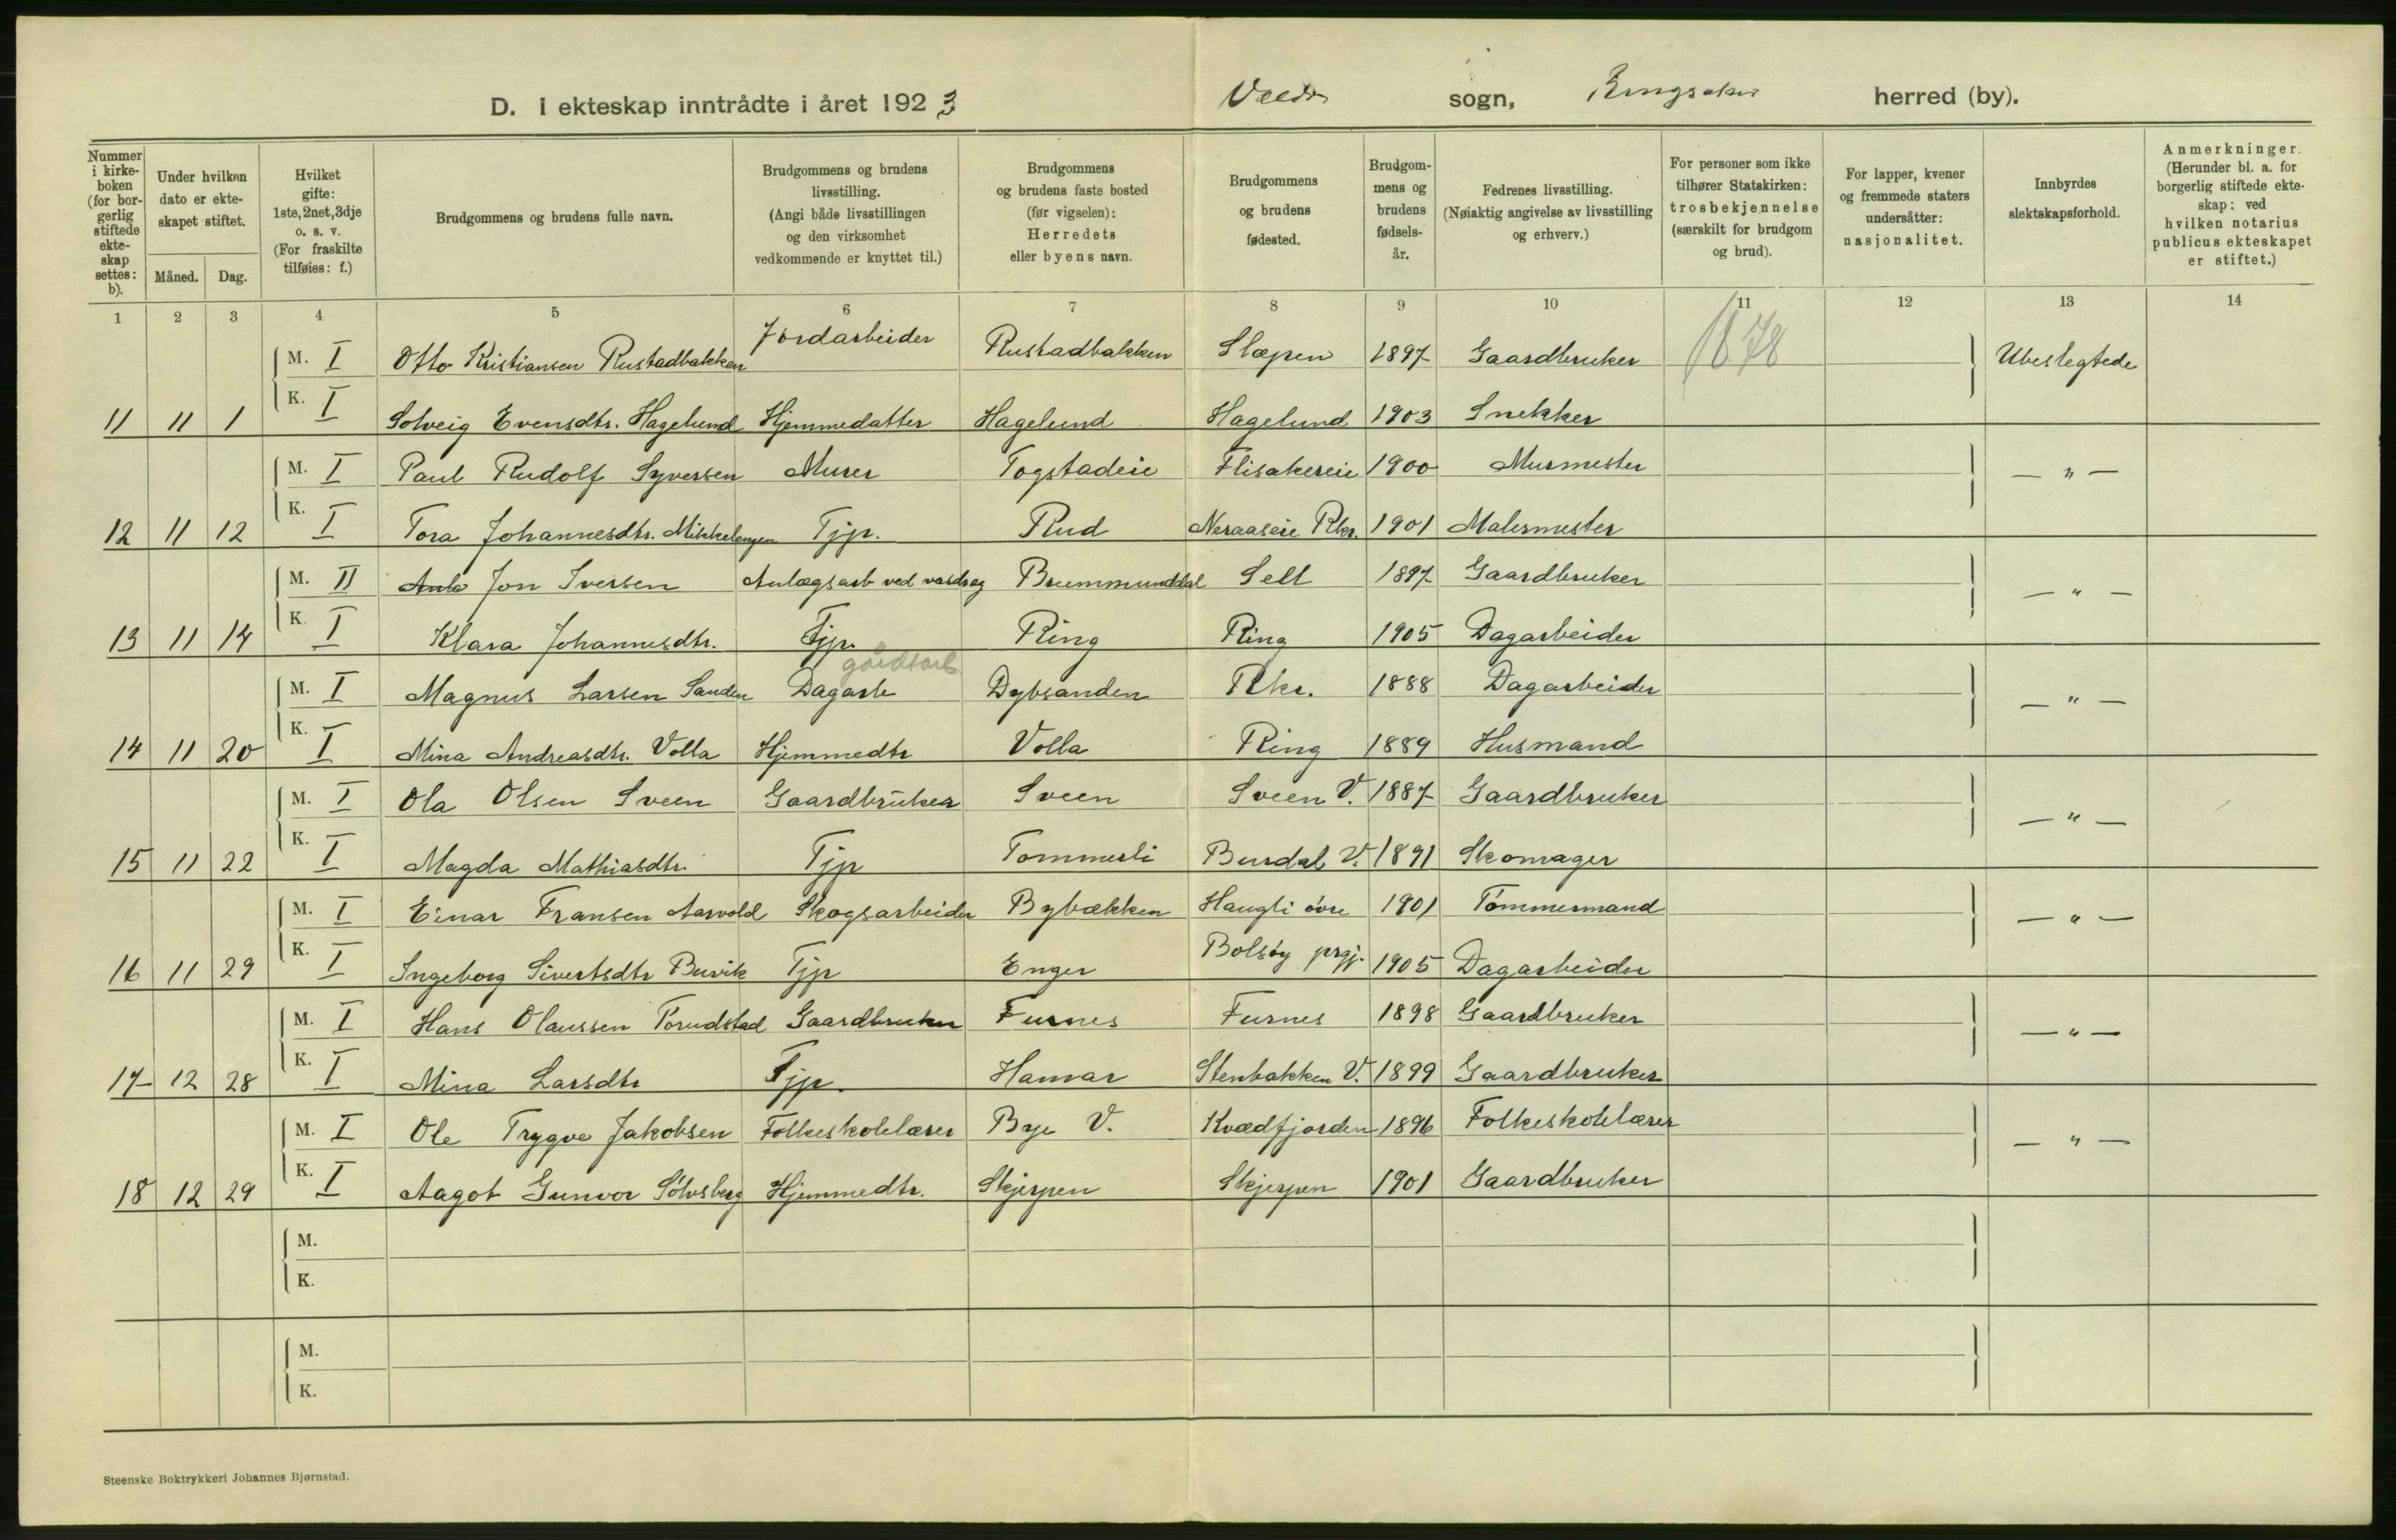 D. I ekteskap inntrådte i året 1923 sogn, Ringsaker herred (by).
Nummer i kirkeboken (for borgerlig stiftede ekteskap settes: b).
Under hvilken dato er ekteskapet stiftet.
Måned. Dag.
Hvilket gifte: 1ste, 2net, 3dje o. s. v. (For fraskilte tilføies: f.)
Brudgommens og brudens fulle navn.
Brudgommens og brudens livsstilling. (Angi både livsstillingen og den virksomhet vedkommende er knyttet til.)
Brudgommens og brudens faste bosted (før vigselen): Herredets eller byens navn.
Brudgommens og brudens fødested.
Brudgommens og brudens fødselsår.
Fedrenes livsstilling. (Nøiaktig angivelse av livsstilling og erhverv.)
For personer som ikke tilhører Statskirken: trosbekjennelse (særskilt for brudgom og brud).
For lapper, kvener og fremmede staters undersåtter: nasjonalitet.
Innbyrdes slektskapsforhold.
Anmerkninger. (Herunder bl. a. for borgerlig stiftede ekteskap: ved hvilken notarius publicus ekteskapet er stiftet.)
1 2 3 4 5 6 7 8 9 10 11 12 13 14
M. I Otto Kristiansen Rustadbakken Jordarbeider Rustadbakken Slæpen 1897 Gaardbruker 1678 Ubeslegtede
11 11 1 K. I Solveig Evensdtr. Hagelund Hjemmedatter Hagelund Hagelund 1903 Snekker
M. I Paul Rudolf Syversen Murer Togstadeie Flisakereie 1900 Murmester — " —
12 11 12 K. I Tora Johannesdtr. Mikkelengen Tjp. Rud Neraaseie Rkr. 1901 Malermester
M. II Jon Iversen Anlægsarb ved vasdrag Brummunddal Sell 1897 Gaardbruker — " —
13 11 14 K. I Klara Johannesdtr. Tjp. Ring Ring 1905 Dagarbeider
gårdsarb
M. I Magnus Larsen Sanden Dagarb Dybsanden Rkr. 1888 Dagarbeider — " —
14 11 20 K. I Mina Andreasdtr. Volla Hjemmedtr Volla Ring 1889 Husmand
M. I Ola Olsen Sveen Gaardbruker Sveen Sveen V. 1887 Gaardbruker — " —
15 11 22 K. I Magda Mathiasdtr. Tjp Tommerli Burdal V. 1891 Skomager
M. I Einar Fransen Aarvold Skogsarbeider Bybækken Haugli øvre 1901 Tømmermand — " —
16 11 29 K. I Ingeborg Sivertsdtr Burik Tjp Enger Bolsøy prgj. 1905 Dagarbeider
M. I Hans Olaussen Torudstad Gaardbruker Furnes Furnes 1898 Gaardbruker — " —
17 12 28 K. I Mina Larsdtr Tjp. Hamar Stenbakken V. 1899 Gaardbruker
M. I Ole Trygve Jakobsen Folkeskolelærer Bye V. Kvædfjorden 1896 Folkeskolelærer — " —
18 12 29 K. I Aagot Gunvor Sølvsberg Hjemmedtr. Skjerpen Skjerpen 1901 Gaardbruker
M.
K.
M.
K.
Steenske Boktrykkeri Johannes Bjørnstad.